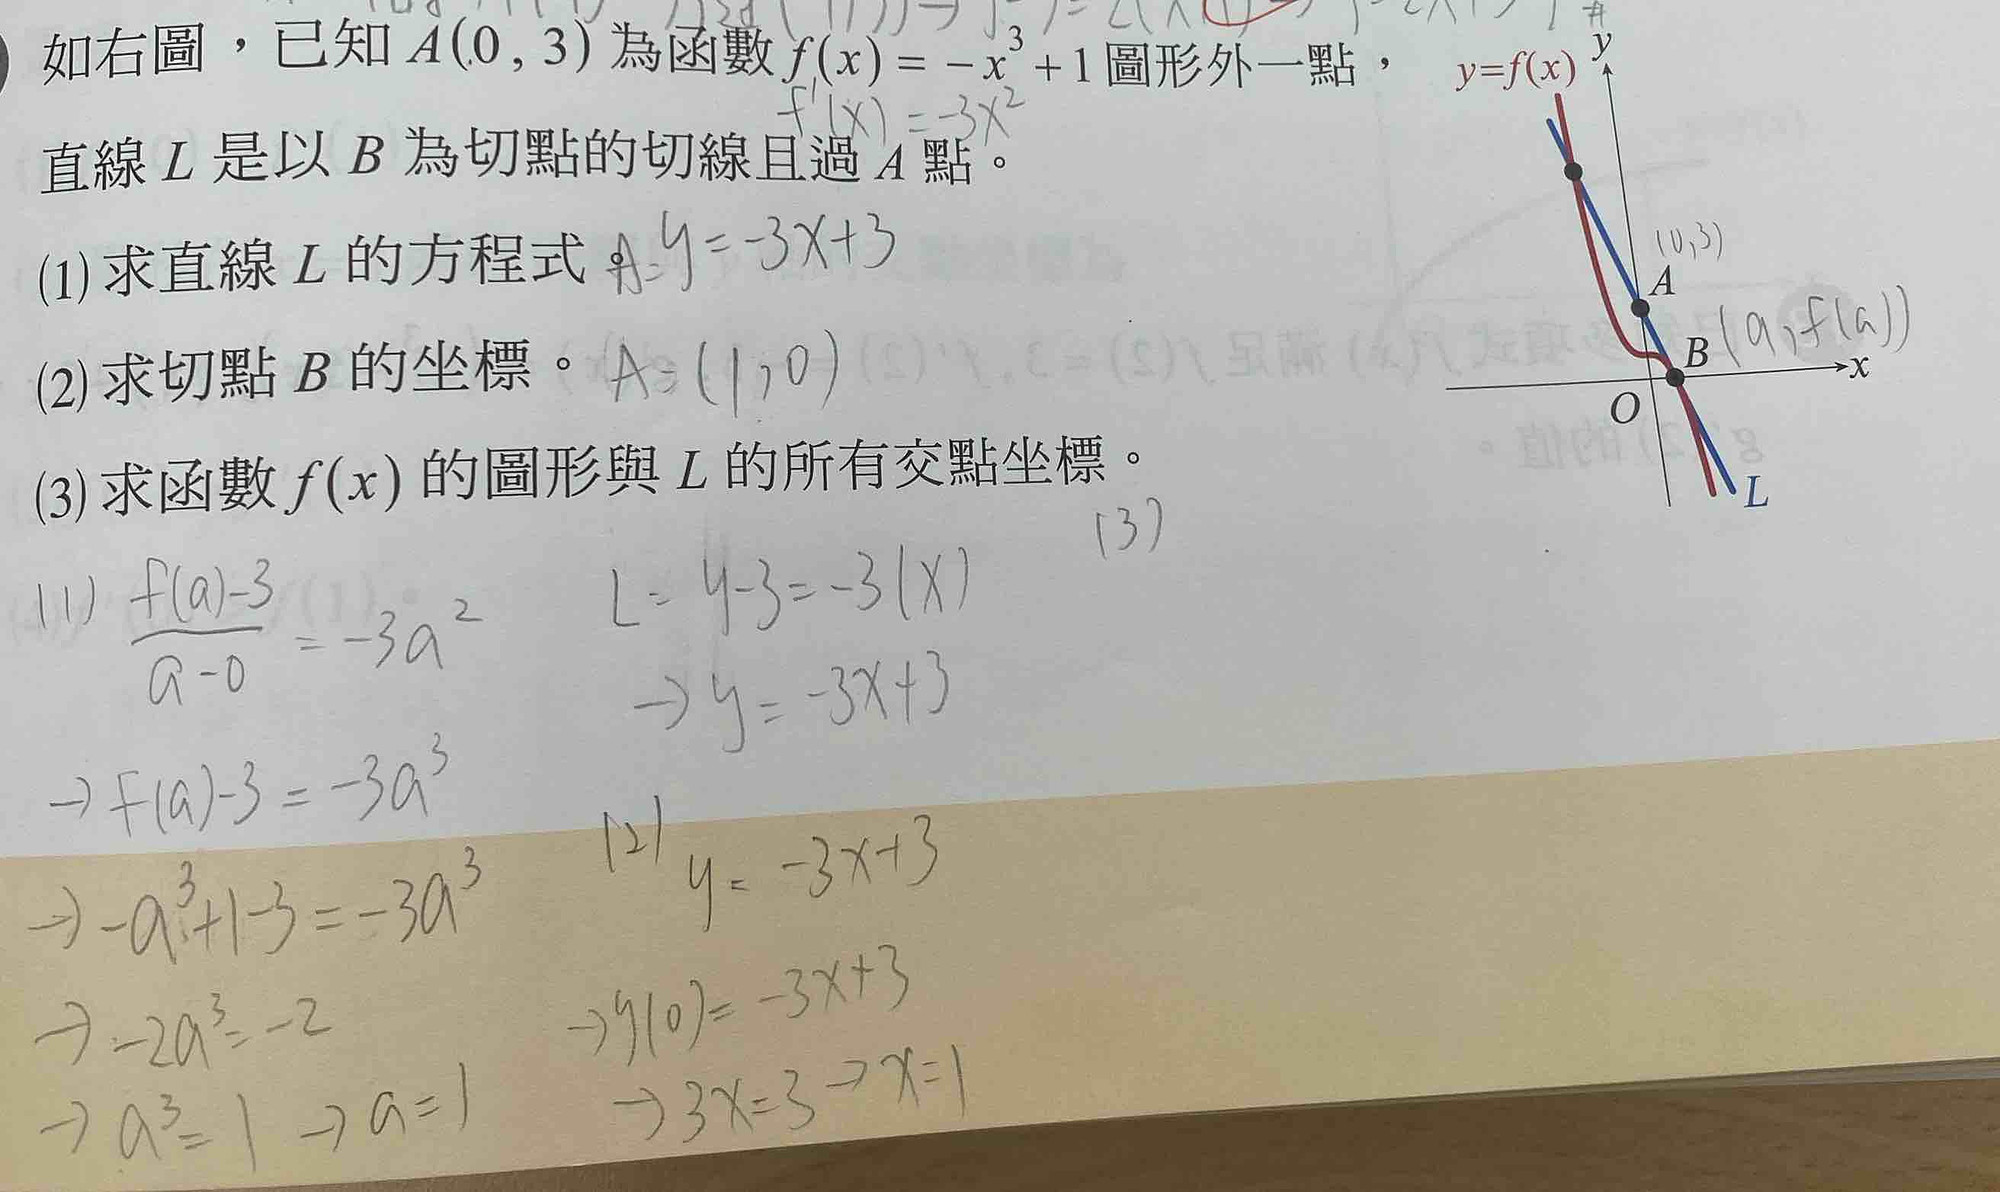 如右圖，已知 A(0, 3) 為函數 f(x) = -x³ + 1 圖形外一點，
f'(x) = -3x²
直線 L 是以 B 為切點的切線且過 A 點。
(1) 求直線 L 的方程式。A= y = -3x+3
(2) 求切點 B 的坐標。A= (1, 0)
(3) 求函數 f(x) 的圖形與 L 的所有交點坐標。
y=f(x)
y
(0,3)
A
B (a, f(a))
x
O
L
(1) (f(a)-3)/(a-0) = -3a²
→ f(a)-3 = -3a³
→ -a³+1-3 = -3a³
→ -2a³ = -2
→ a³ = 1 → a = 1
L= y-3 = -3(x)
→ y = -3x+3
(2) y = -3x+3
→ y(0) = -3x+3
→ 3x=3 → x=1
(3)